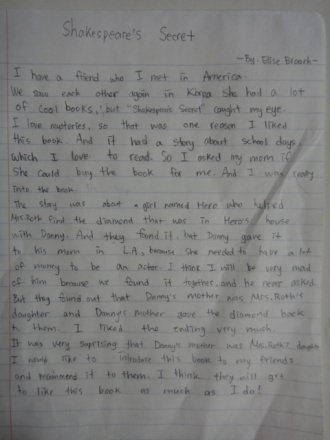 Shakespeare's Secret
-By. Elise Broach-
I have a friend who I met in America.
We saw each other again in Korea She had a lot
of cool books, but "Shakespeare's Secret" caught my eye.
I love mysteries, so that was one reason I liked
this book. And it had a story about school days,
which I love to read. So I asked my mom if
she could buy the book for me. And I was really
into the book.
The story was about a girl named Hero who helped
Mrs. Roth find the diamond that was in Hero's house
with Danny. And they found it, but Danny gave it
to his mom in L.A., because she needed to have a lot
of money to be an actor. I think I will be very mad
of him because we found it together, and he never asked.
But they found out that Danny's mother was Mrs. Roth's
daughter and Danny's mother gave the diamond back
to them. I liked the ending very much.
It was very suprising that Danny's mother was Mrs. Roth's daughter
I would like to introduce this book to my friends
and recommend it to them. I think they will get
to like this book as much as I do!